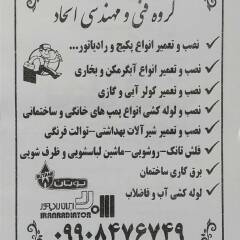 گروه فنی و مهندسی اتحاد
نصب و تعمیر انواع پکیج و رادیاتور...
نصب و تعمیر انواع آبگرمکن و بخاری
نصب و تعمیر کولر آبی و گازی
نصب و لوله کشی انواع پمپ های خانگی و ساختمانی
نصب و تعمیر شیرآلات بهداشتی-توالت فرنگی
فلش تانک-روشویی-ماشین لباسشویی و ظرف شویی
برق کاری ساختمان
لوله کشی آب و فاضلاب
بوتان
ایران رادیاتور
IRANRADIATOR
۰۹۹۰۸۴۷۶۷۴۹